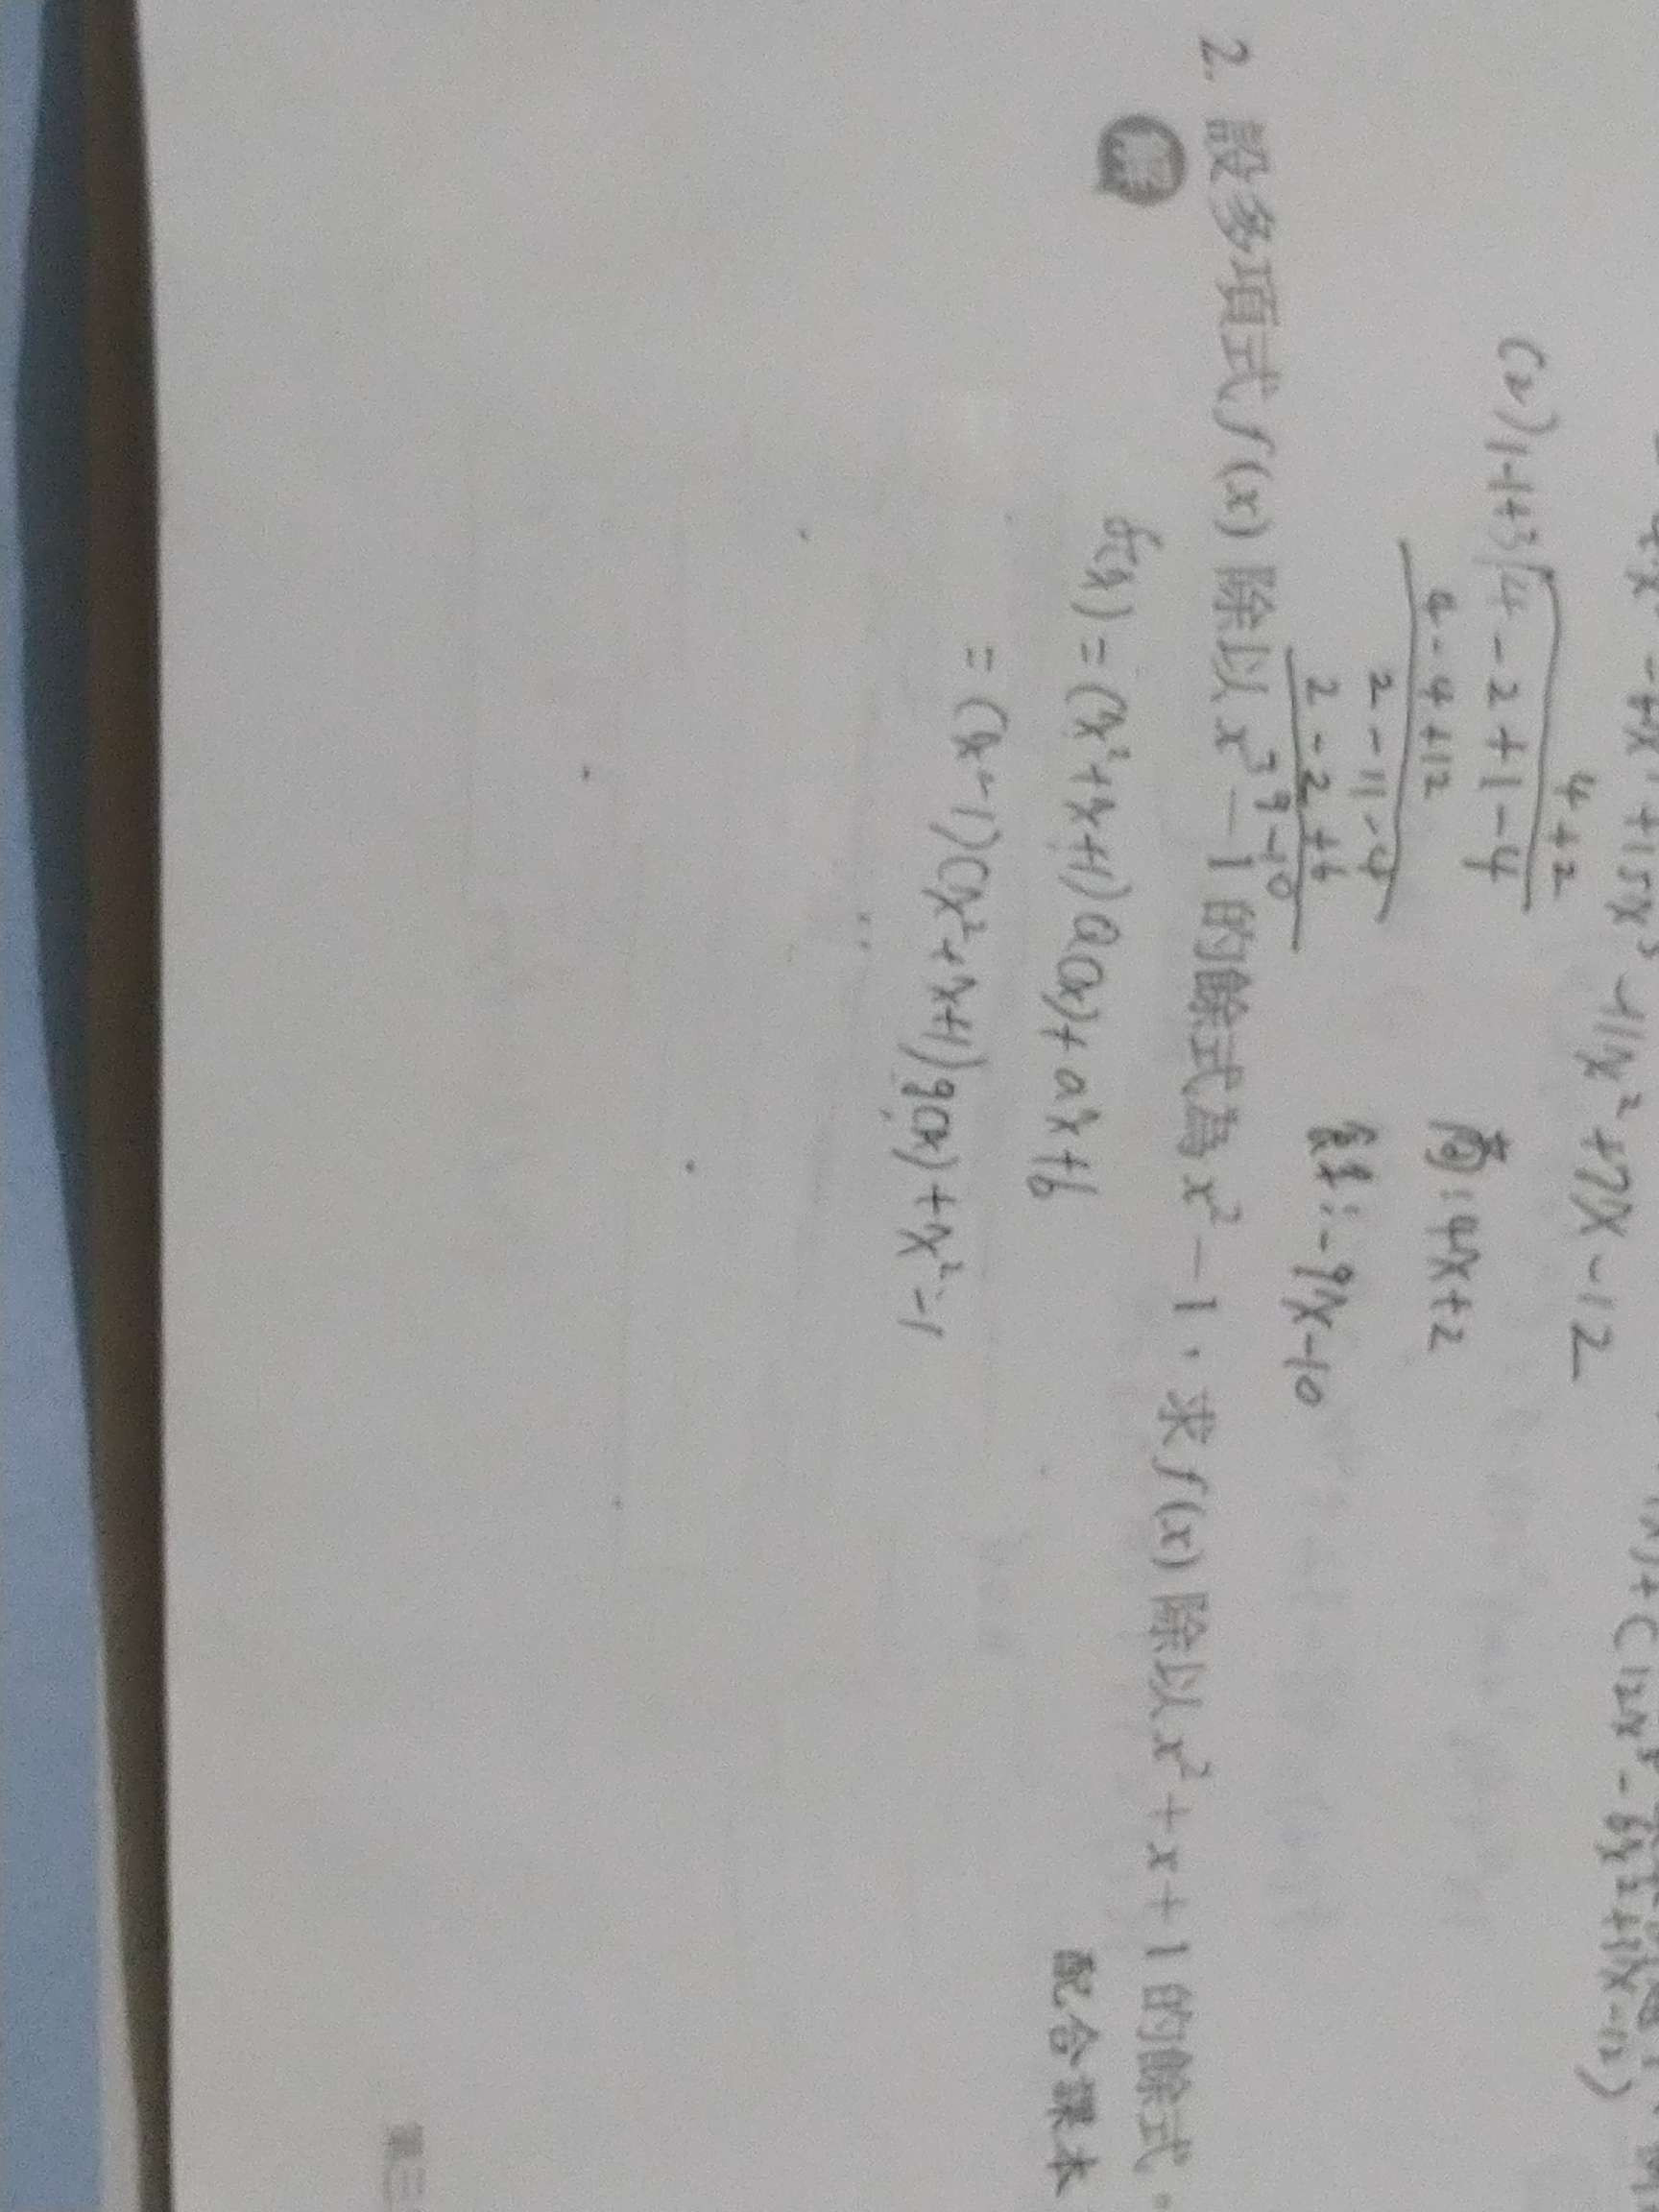 +15x³ -11x² +7x -12
(12x³ -6x² +11x -12)
4+2
(2) 1-1+3 4-2+1-4
4-4+12
2-11-4
2-2+6
9-10
商:4x+2
餘:-9x-10
2. 設多項式 f(x) 除以 x³-1 的餘式為 x²-1,求 f(x) 除以 x²+x+1 的餘式。
配合課本
f(x) = (x²+x+1)Q(x)+ax+b
= (x-1)(x²+x+1)q(x)+x²-1
第三